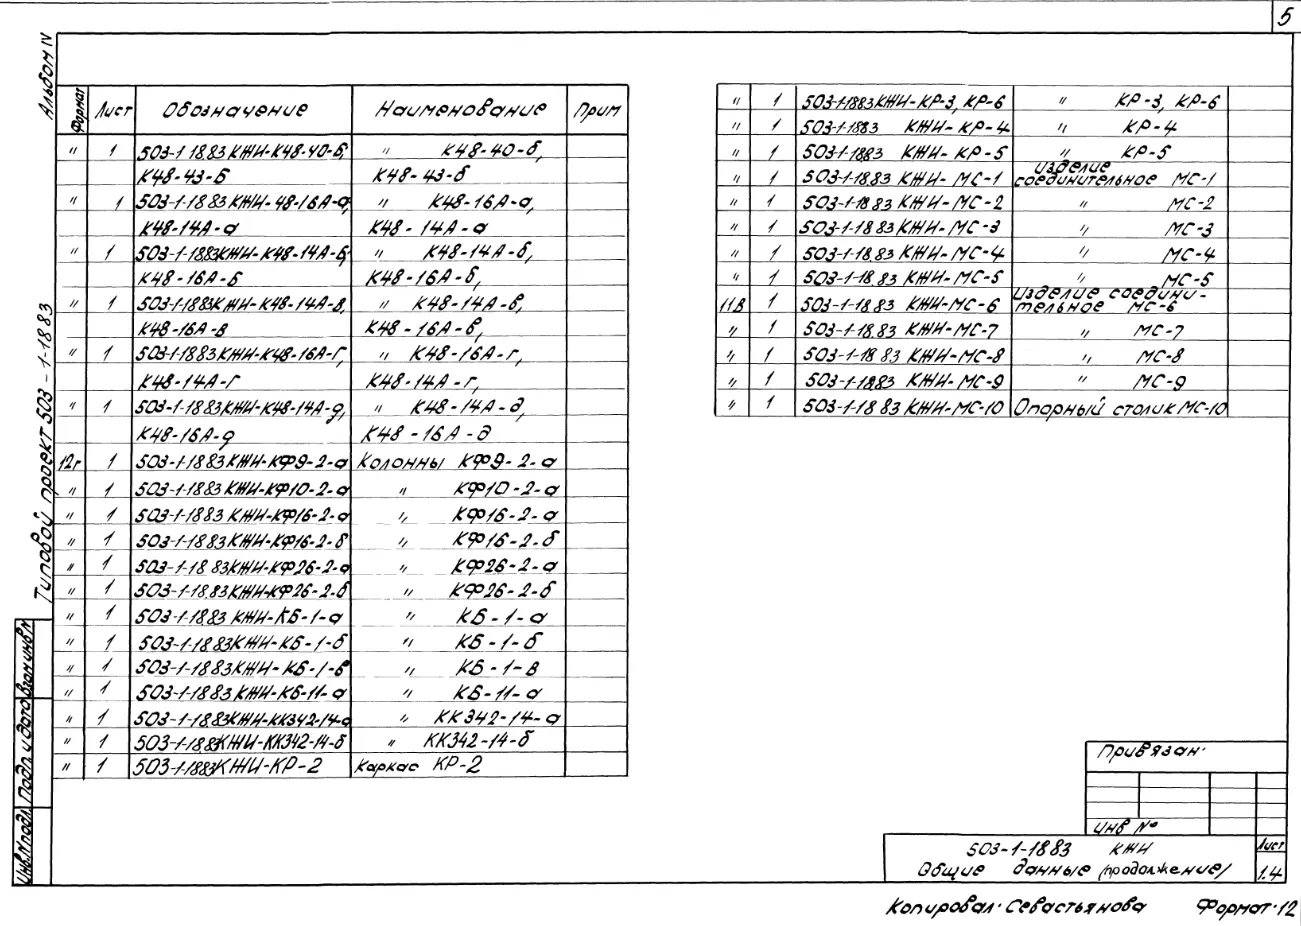 5
Альбом IV
Типовой проект 503-1-18.83
Формат Лист Обозначение Наименование Прим
" 1 503-1-18.83 КЖИ-К48-40-б, " К48-40-б,
К48-43-б К48-43-б
" 1 503-1-18.83 КЖИ-48-16А-а, " К48-16А-а,
К48-14А-а К48-14А-а
" 1 503-1-18.83 КЖИ-К48-14А-б, " К48-14А-б,
К48-16А-б К48-16А-б,
" 1 503-1-18.83 КЖИ-К48-14А-в, " К48-14А-в,
К48-16А-в К48-16А-в,
" 1 503-1-18.83 КЖИ-К48-16А-г, " К48-16А-г,
К48-14А-г К48-14А-г,
" 1 503-1-18.83 КЖИ-К48-14А-д, " К48-14А-д,
К48-16А-д К48-16А-д
12г 1 503-1-18.83 КЖИ-КФ9-2-а Колонны КФ9-2-а
" 1 503-1-18.83 КЖИ-КФ10-2-а " КФ10-2-а
" 1 503-1-18.83 КЖИ-КФ16-2-а " КФ16-2-а
" 1 503-1-18.83 КЖИ-КФ16-2-б " КФ16-2-б
" 1 503-1-18.83 КЖИ-КФ26-2-а " КФ26-2-а
" 1 503-1-18.83 КЖИ-КФ26-2-б " КФ26-2-б
" 1 503-1-18.83 КЖИ-КБ-1-а " КБ-1-а
" 1 503-1-18.83 КЖИ-КБ-1-б " КБ-1-б
" 1 503-1-18.83 КЖИ-КБ-1-в " КБ-1-в
" 1 503-1-18.83 КЖИ-КБ-11-а " КБ-11-а
" 1 503-1-18.83 КЖИ-КК342-14-а " КК342-14-а
" 1 503-1-18.83 КЖИ-КК342-14-б " КК342-14-б
" 1 503-1-18.83 КЖИ-КР-2 Каркас КР-2
" 1 503-1-18.83 КЖИ-КР-3, КР-6 " КР-3, КР-6
" 1 503-1-18.83 КЖИ-КР-4 " КР-4
" 1 503-1-18.83 КЖИ-КР-5 " КР-5
Изделие
" 1 503-1-18.83 КЖИ-МС-1 соединительное МС-1
" 1 503-1-18.83 КЖИ-МС-2 " МС-2
" 1 503-1-18.83 КЖИ-МС-3 " МС-3
" 1 503-1-18.83 КЖИ-МС-4 " МС-4
" 1 503-1-18.83 КЖИ-МС-5 " МС-5
Изделие соедини-
11В 1 503-1-18.83 КЖИ-МС-6 тельное МС-6
" 1 503-1-18.83 КЖИ-МС-7 " МС-7
" 1 503-1-18.83 КЖИ-МС-8 " МС-8
" 1 503-1-18.83 КЖИ-МС-9 " МС-9
" 1 503-1-18.83 КЖИ-МС-10 Опорный столик МС-10
Инв.N подл. Подп. и дата Взам.инв.N
Привязан:
Инв №
503-1-18.83 КЖИ
Общие данные /продолжение/
Лист
1.4
Копировал: Севастьянова Формат: 12